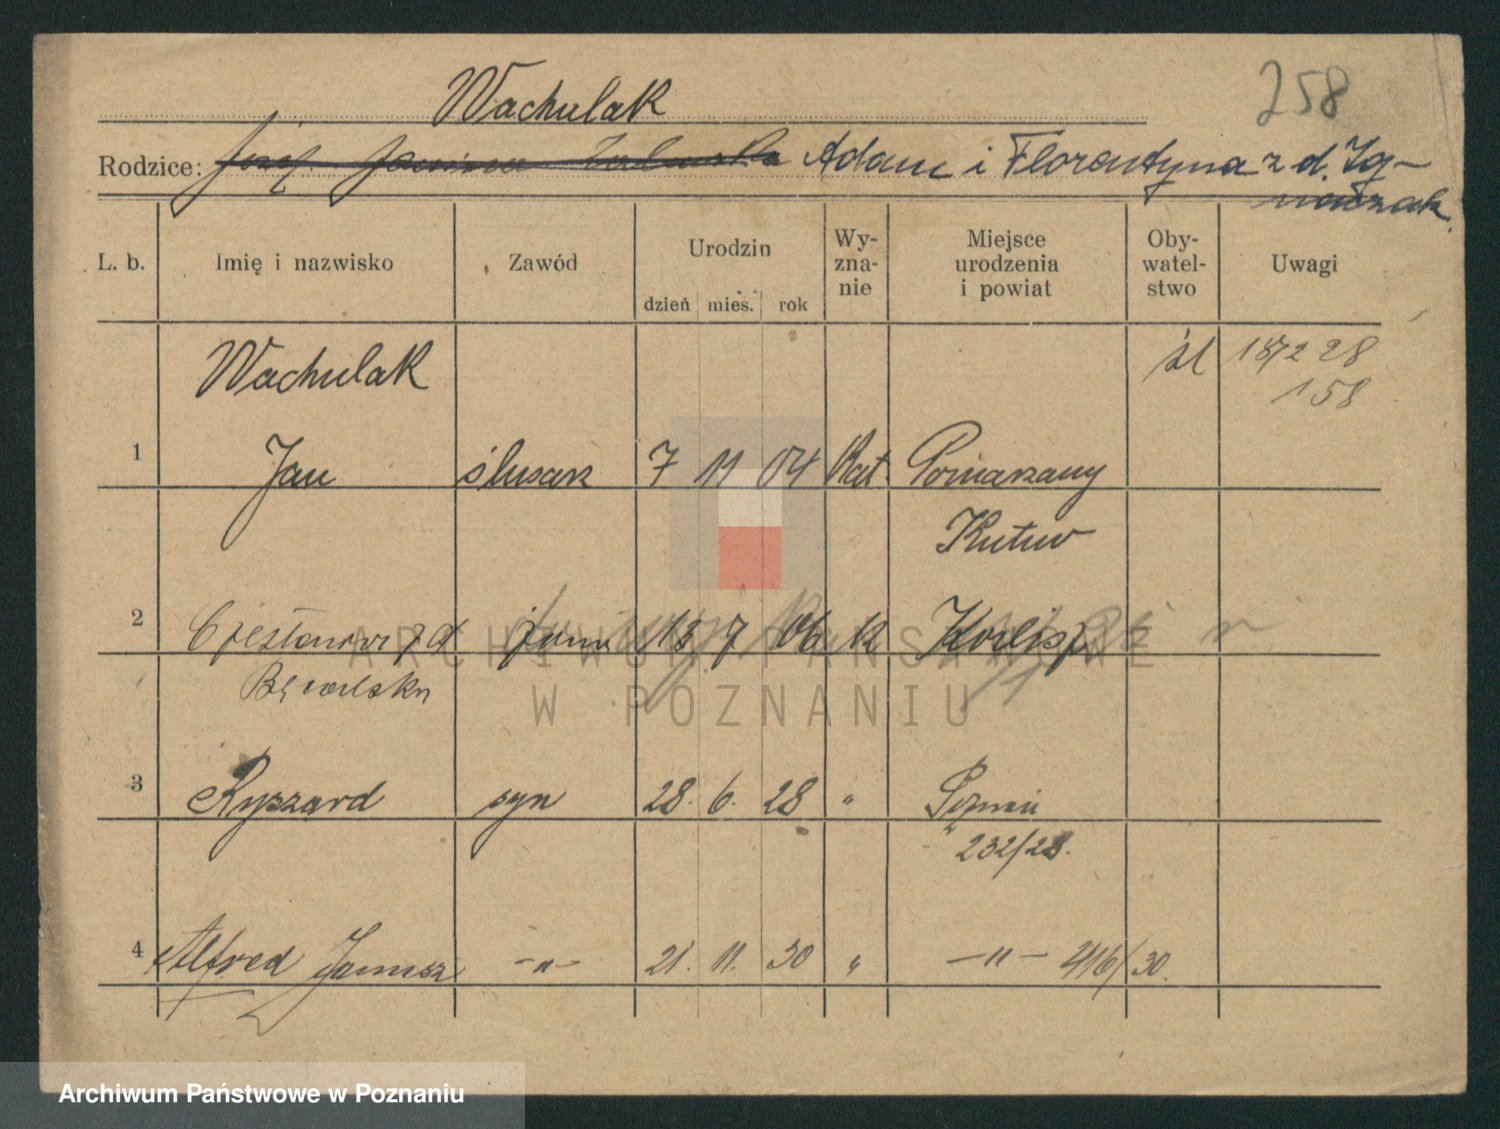 Wachulak
258
Rodzice: Józef Adam i Florentyna z d. Ig-
naczak.
L. b. Imię i nazwisko Zawód Urodzin dzień mies. rok Wy-zna-nie Miejsce urodzenia i powiat Oby-watel-stwo Uwagi
Wachulak 187228
158
1 Jan ślusarz 7 11 04 Kat.
Kutno
2 żona 13 7 06 k
3 Ryszard syn 28. 6. 28 " Poznań
232/28.
4 Alfred Janusz -"- 21. 11. 30 " -"- 416/30.
ARCHIWUM PAŃSTWOWE
W POZNANIU
Archiwum Państwowe w Poznaniu